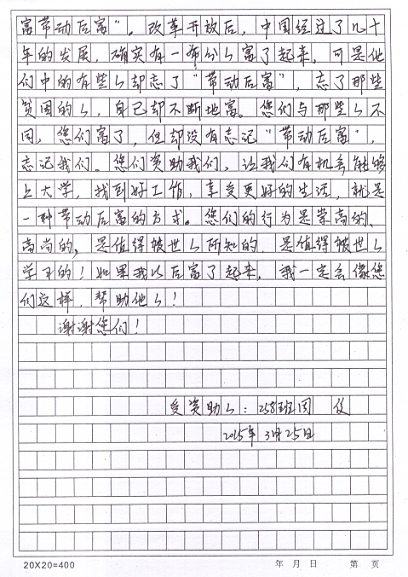 富带动后富”。改革开放后，中国经过了几十
年的发展，确实有一部分人富了起来，可是他
们中的有些人却忘了“带动后富”，忘了那些
贫困的人，自己却不断地富。您们与那些人不
同，您们富了，但却没有忘记“带动后富”，
忘记我们。您们资助我们，让我们有机会能够
上大学，找到好工作，享受更好的生活，就是
一种带动后富的方式。您们的行为是崇高的、
高尚的，是值得被世人所知的，是值得被世人
学习的！如果我以后富了起来，我一定会像您
们这样，帮助他人！
谢谢您们！
受资助人：258班
2015年3月25日
20X20=400 年 月 日 第 页